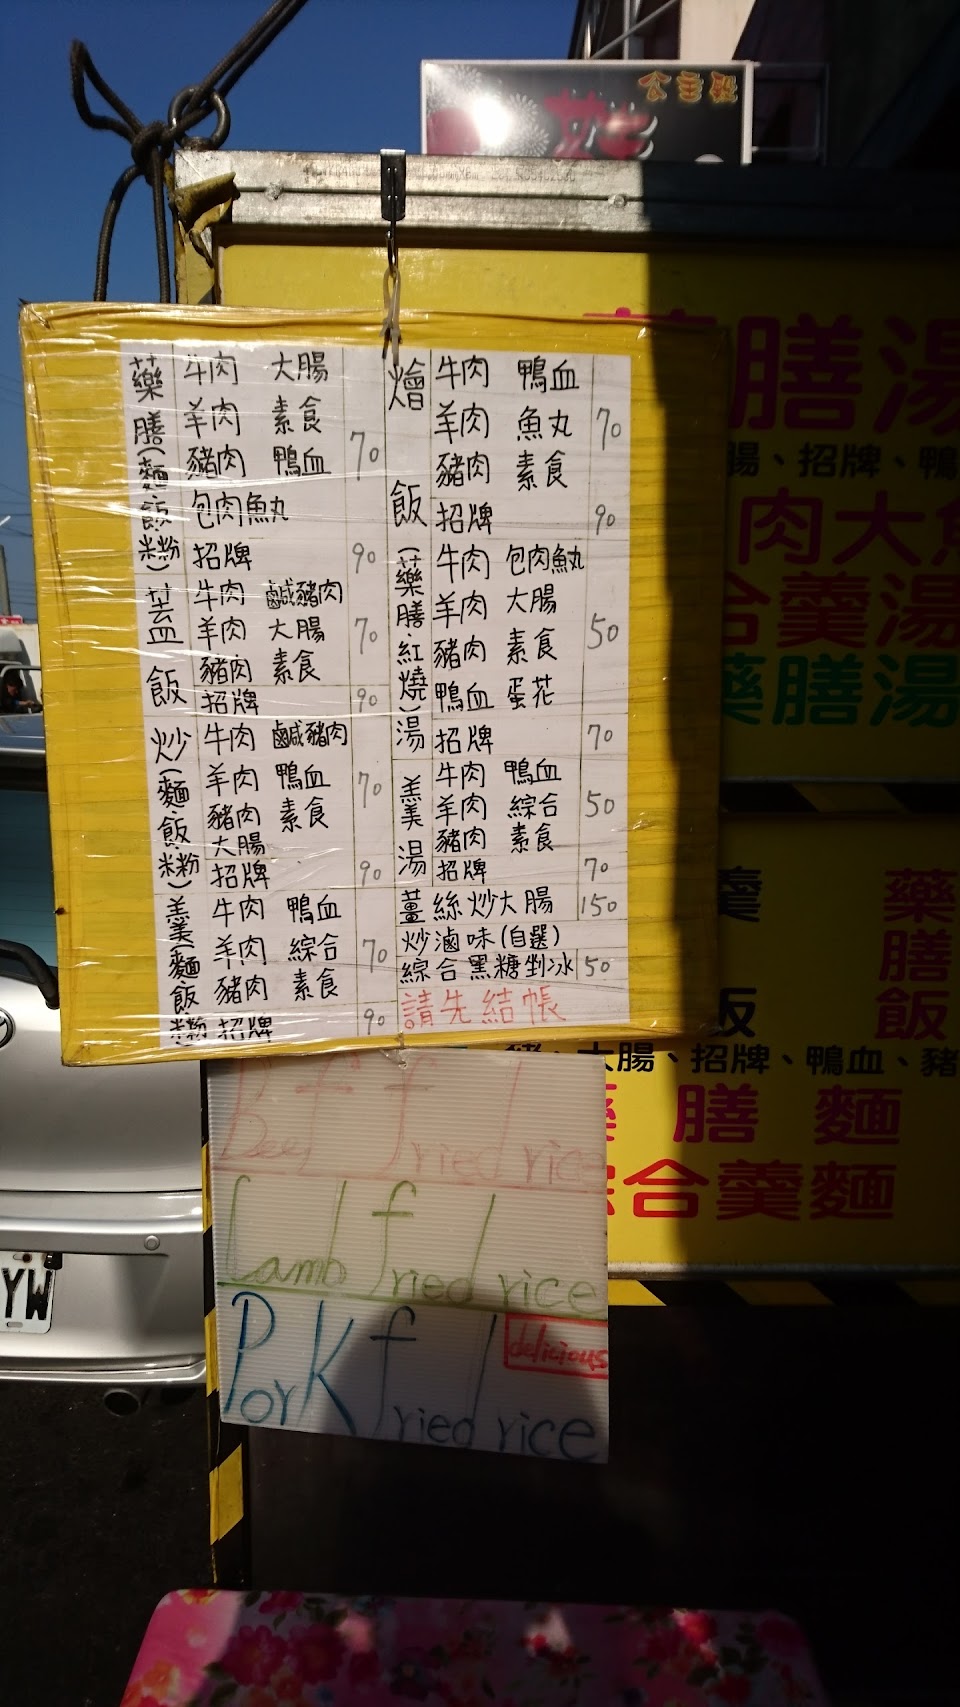 公主殿
藥膳(麵.飯.米粉)
牛肉 大腸
羊肉 素食
豬肉 鴨血
包肉魚丸
70
招牌 90
蓋飯
牛肉 鹹豬肉
羊肉 大腸
豬肉 素食
70
招牌 90
炒(麵.飯.米粉)
牛肉 鹹豬肉
羊肉 鴨血
豬肉 素食
大腸
70
招牌 90
羹(麵飯米粉
牛肉 鴨血
羊肉 綜合
豬肉 素食
70
招牌 90
燴飯
牛肉 鴨血
羊肉 魚丸
豬肉 素食
70
招牌 90
(藥膳.紅燒)湯
牛肉 包肉魚丸
羊肉 大腸
豬肉 素食
鴨血 蛋花
50
招牌 70
羹湯
牛肉 鴨血
羊肉 綜合
豬肉 素食
50
招牌 70
薑絲炒大腸 150
炒滷味(自選)
綜合黑糖剉冰 50
請先結帳
Beef fried rice
Lamb fried rice
Pork fried rice
delicious
膳湯
腸、招牌、鴨
肉大魚
合羹湯
藥膳湯
羹
藥膳飯
飯
豬、大腸、招牌、鴨血、豬
藥膳麵
綜合羹麵
YW